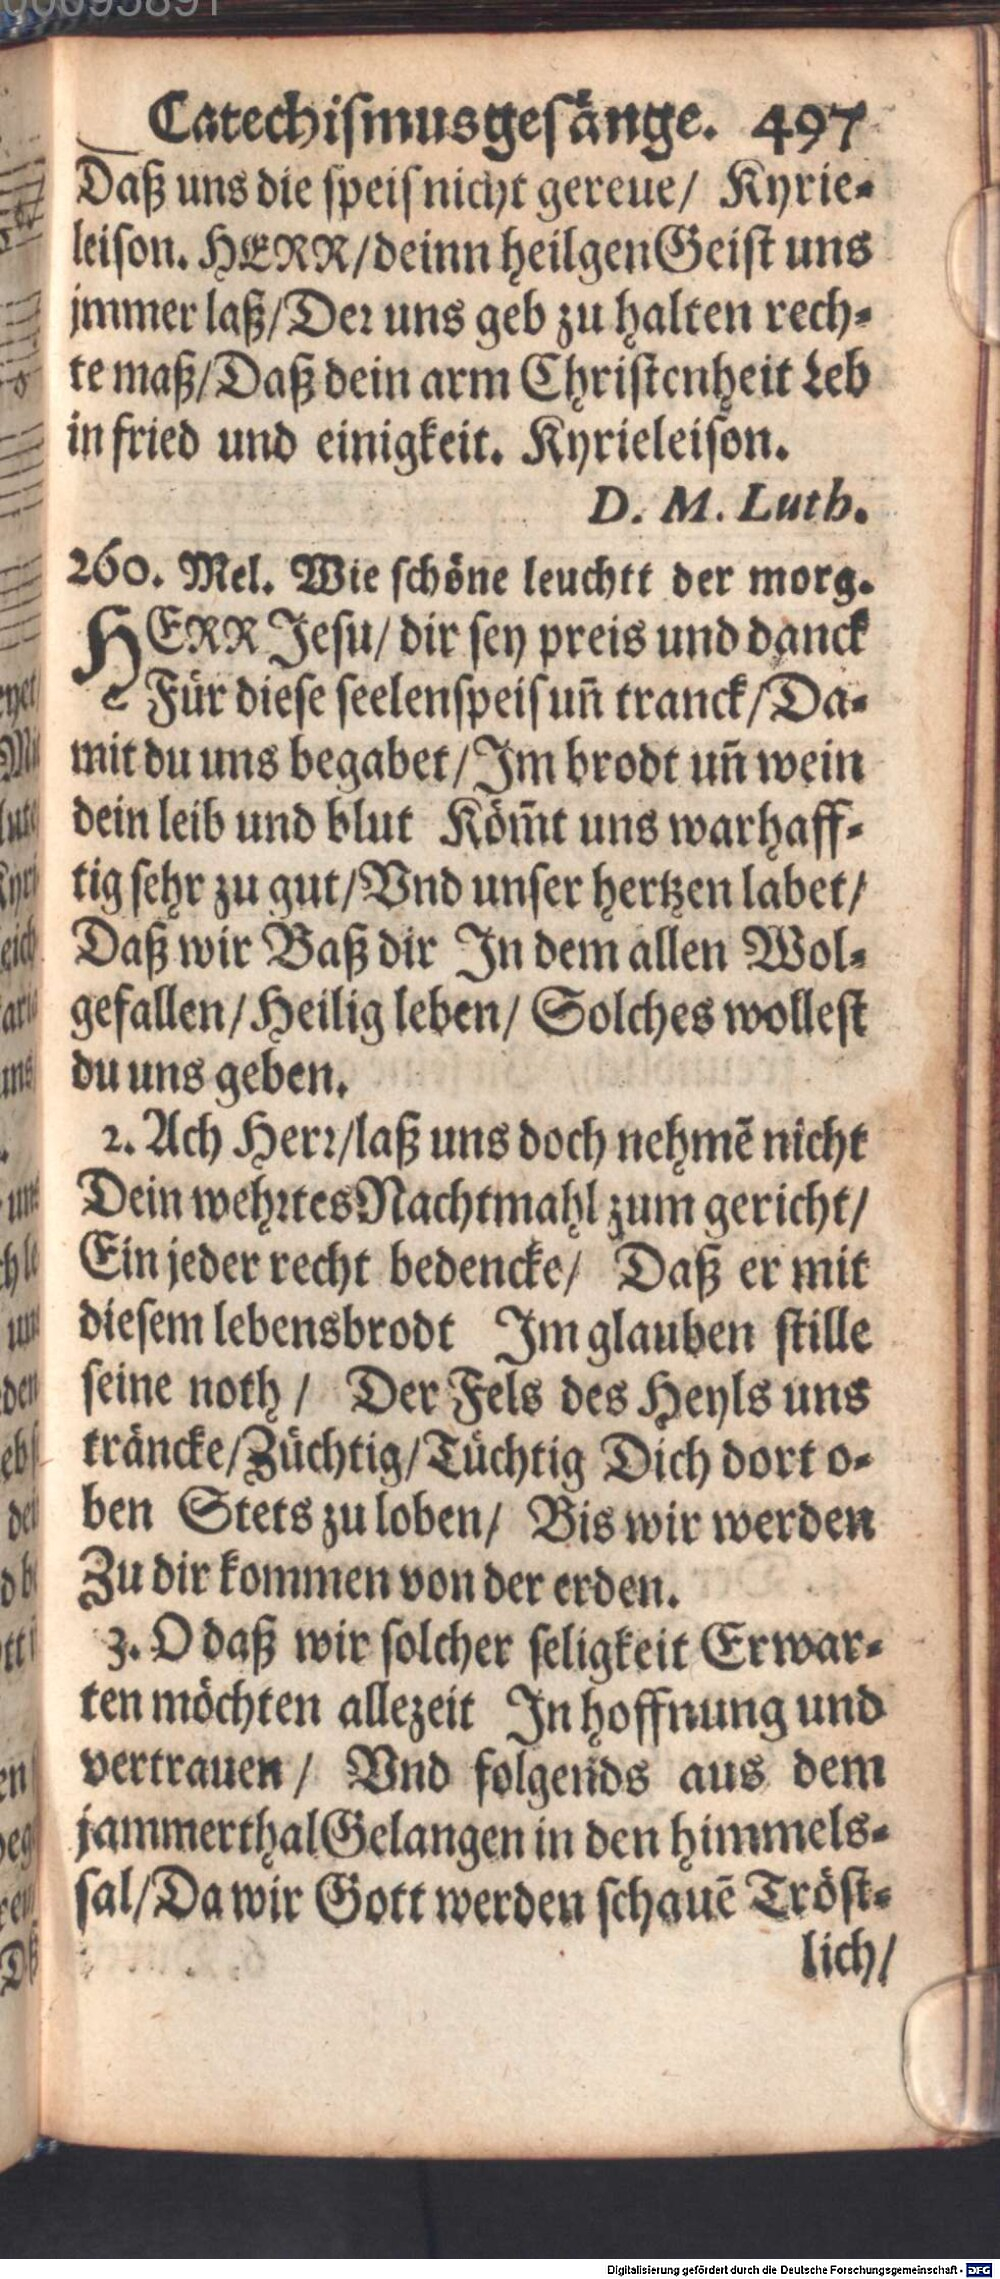 Catechismusgesänge. 497
Daß uns die speis nicht gereue/ Kyrie-
leison. HERR/deinn heilgen Geist uns
jmmer laß/Der uns geb zu halten rech-
te maß/Daß dein arm Christenheit Leb
in fried und einigkeit. Kyrieleison.
D. M. Luth.
260. Mel. Wie schöne leuchtt der morg.
HERR Jesu/ dir sey preis und danck
Für diese seelenspeis uñ tranck/Da-
mit du uns begabet/Im brodt uñ wein
dein leib und blut Köm̃t uns warhaff-
tig sehr zu gut/Vnd unser hertzen labet/
Daß wir Baß dir In dem allen Wol-
gefallen/Heilig leben/ Solches wollest
du uns geben.
2. Ach Herr/laß uns doch nehmẽ nicht
Dein wehrtes Nachtmahl zum gericht/
Ein jeder recht bedencke/ Daß er mit
diesem lebensbrodt Im glauben stille
seine noth/ Der Fels des Heyls uns
träncke/Züchtig/Tüchtig Dich dort o-
ben Stets zu loben/ Bis wir werden
Zu dir kommen von der erden.
3. O daß wir solcher seligkeit Erwar-
ten möchten allezeit In hoffnung und
vertrauen/ Vnd folgends aus dem
jammerthal Gelangen in den himmels-
sal/Da wir Gott werden schauẽ Tröst-
lich/
Digitalisierung gefördert durch die Deutsche Forschungsgemeinschaft - DFG